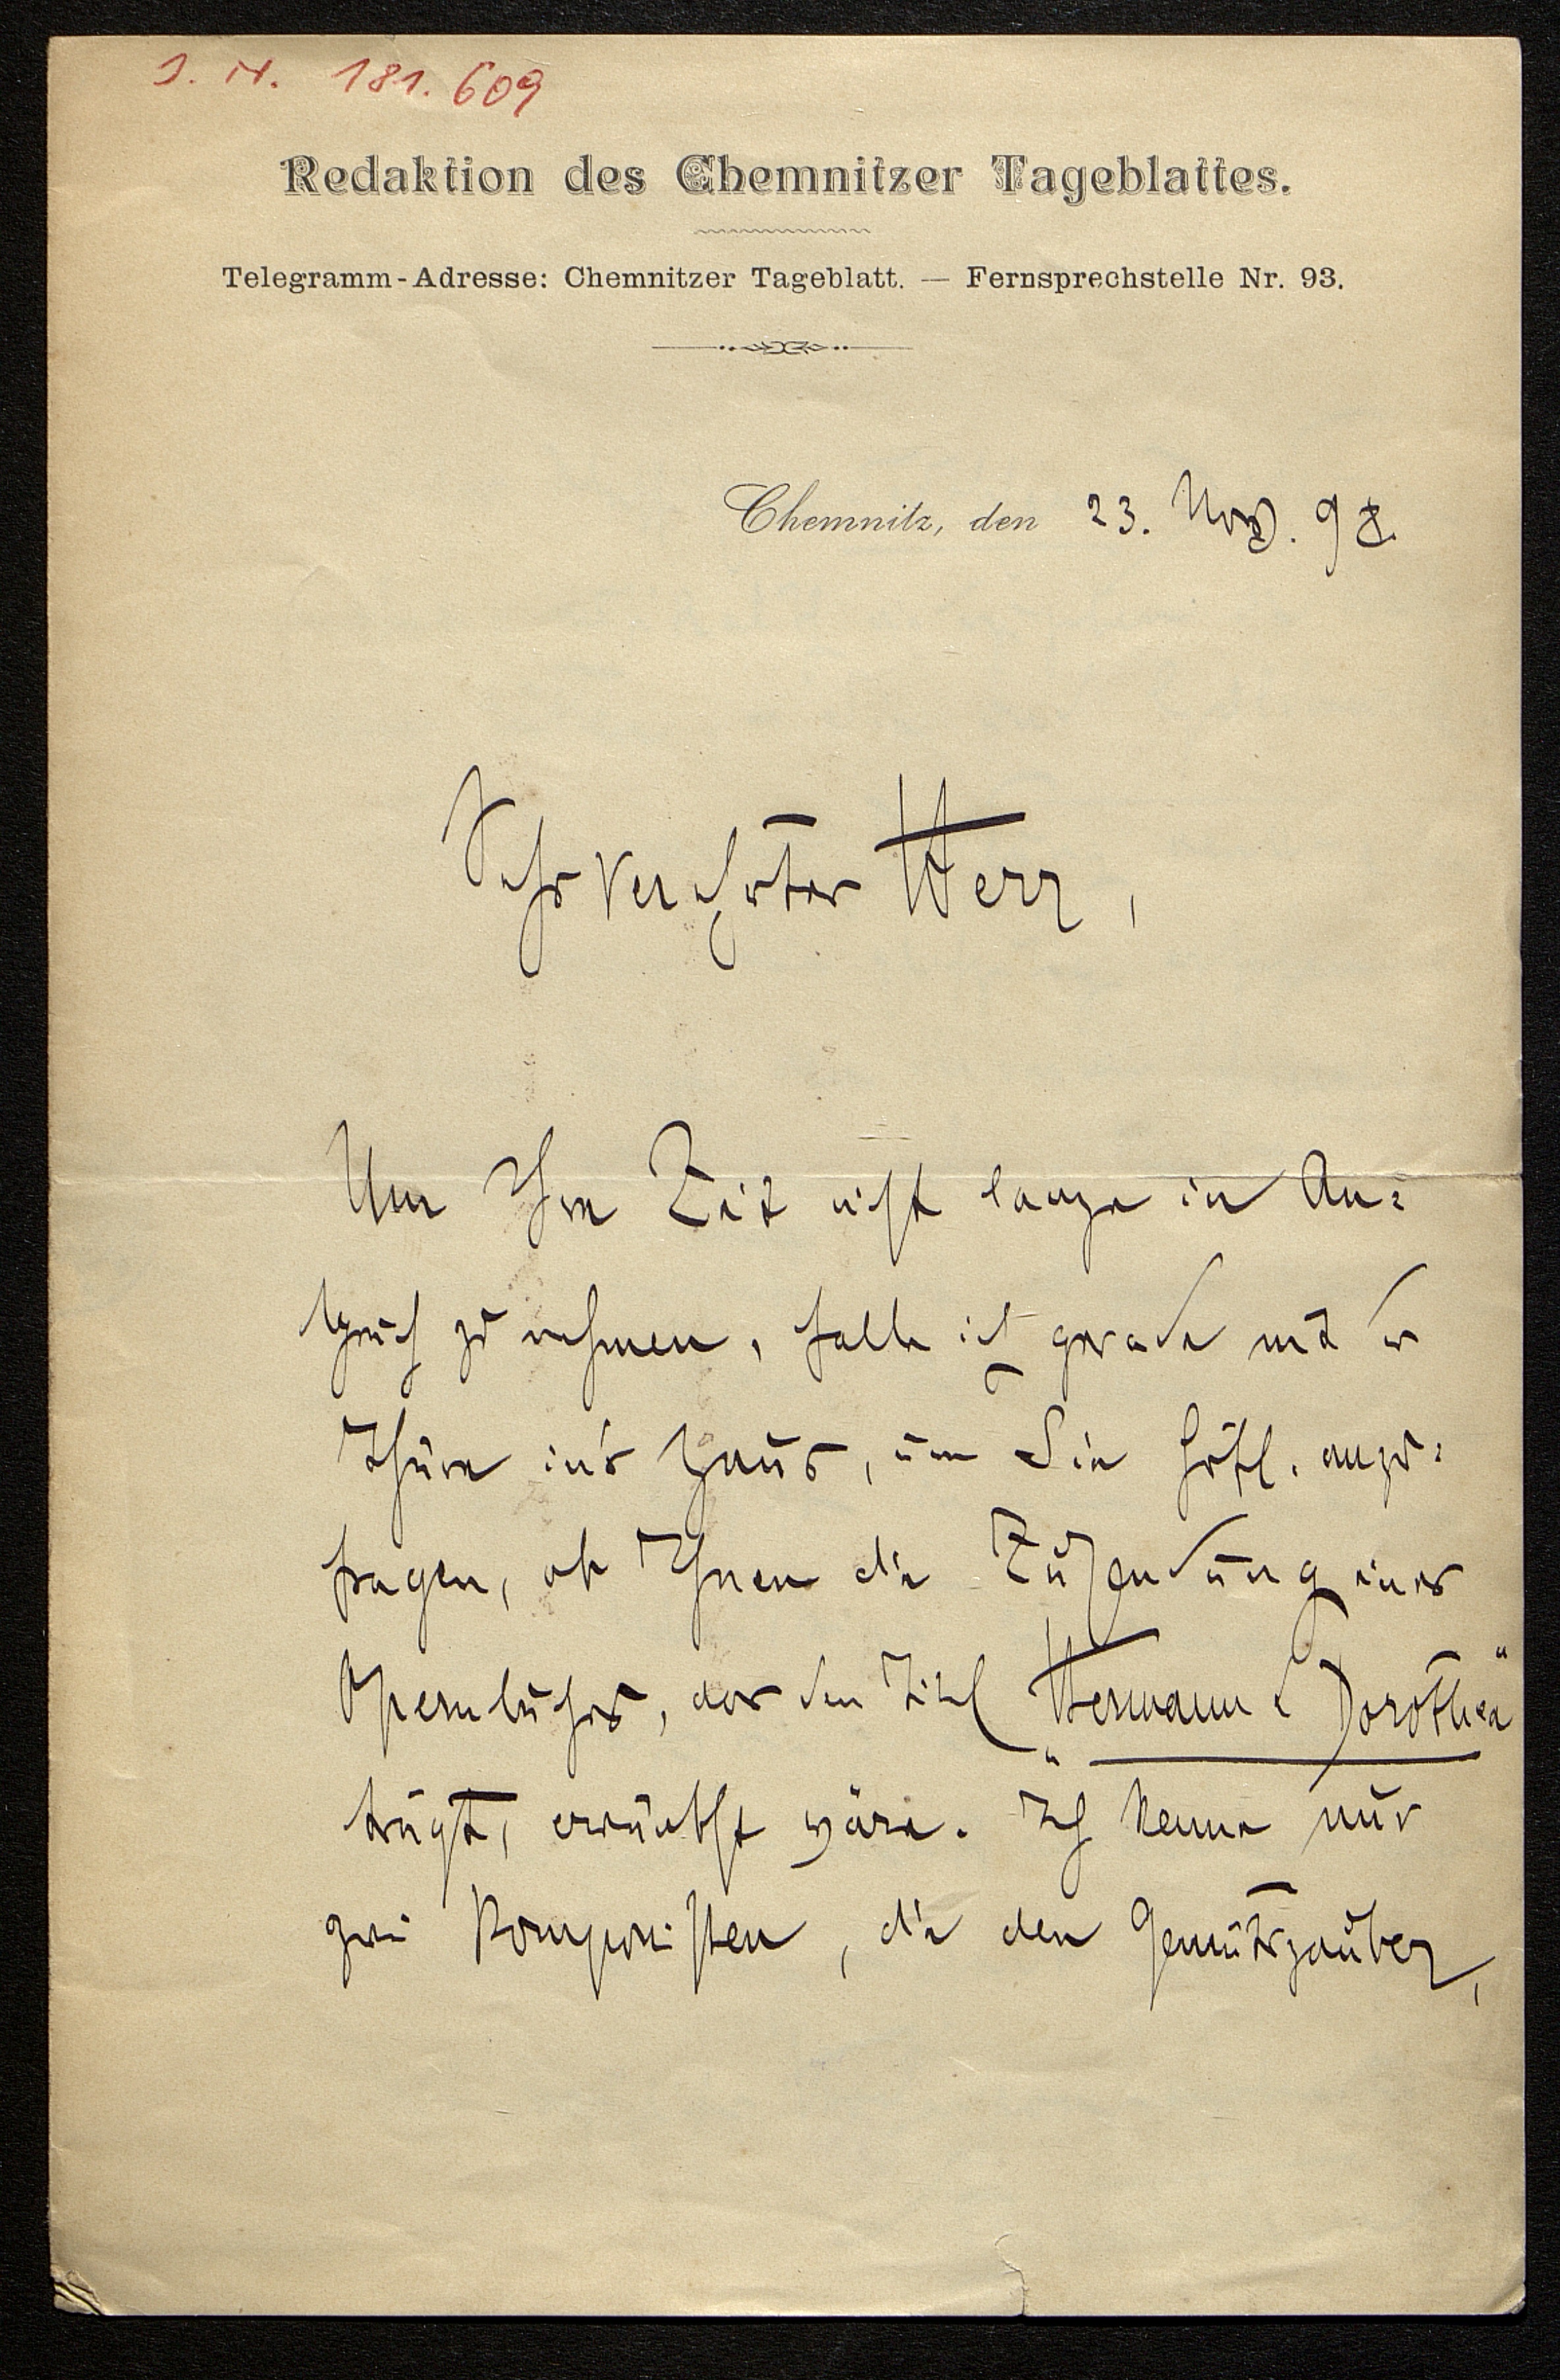 J. N. 181.609
Redaktion des Chemnitzer Tageblattes.
Telegramm-Adresse: Chemnitzer Tageblatt. — Fernsprechstelle Nr. 93.
Chemnitz, den 23. Nov. 98.
Sehr verehrter Herr,
Um Ihre Zeit nicht lange in An-
spruch zu nehmen, falle ich gerade mit der
Thüre in's Haus, um Sie höfl. anzu-
fragen, ob Ihnen die Zusendung eines
Opernbuches, das den Titel „Hermann & Dorothea"
trägt, erwünscht wäre. Ich kenne nur
zwei Komponisten, die den Gemütszauber,